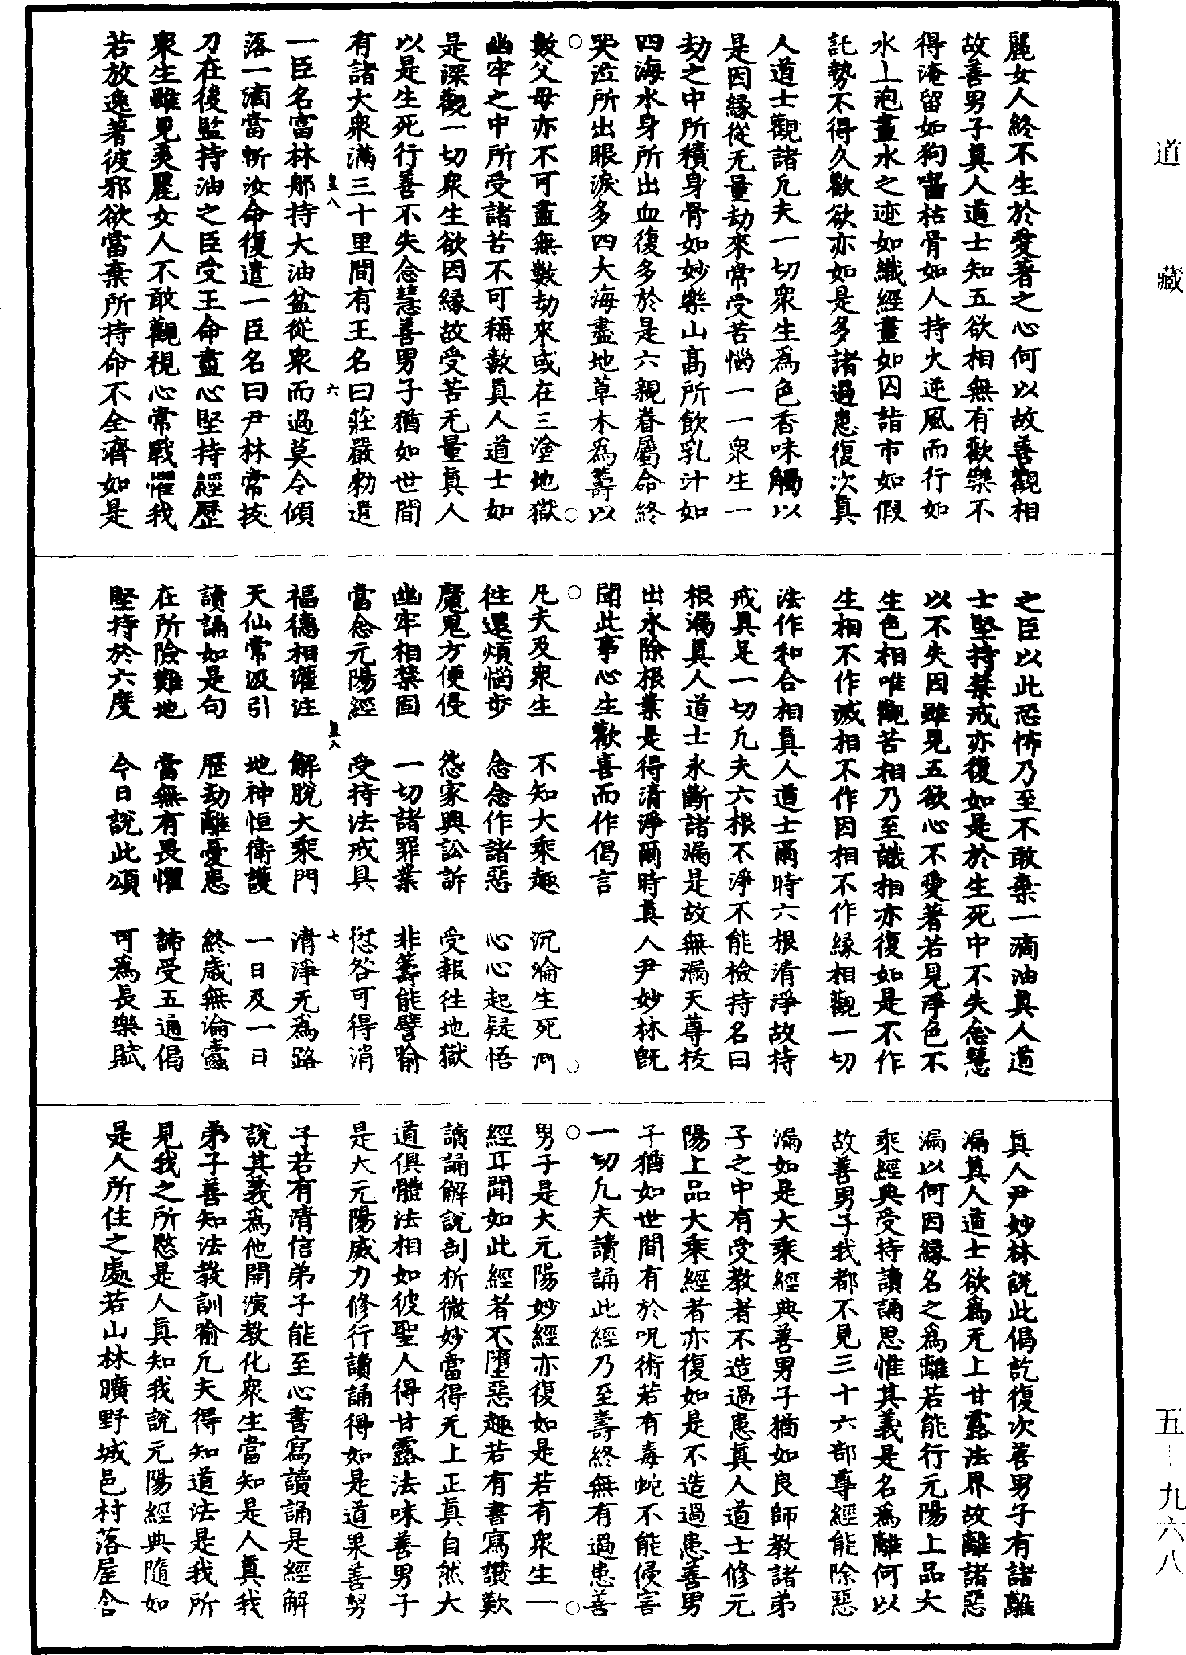 道藏
五—九六八
麗女人終不生於愛著之心何以故善觀相
故善男子真人道士知五欲相無有歡樂不
得淹留如狗嚙枯骨如人持火逆風而行如
水上泡畫水之迹如織經盡如囚詣市如假
託勢不得久歡欲亦如是多諸過患復次真
人道士觀諸凡夫一切衆生爲色香味觸以
是因緣從无量劫來常受苦惱一一衆生一
劫之中所積身骨如妙樂山高所飲乳汁如
四海水身所出血復多於是六親眷屬命終
哭泣所出眼淚多四大海盡地草木爲籌以
數父母亦不可盡無數劫來或在三塗地獄
幽牢之中所受諸苦不可稱數真人道士如
是深觀一切衆生欲因緣故受苦无量真人
以是生死行善不失念慧善男子猶如世間
有諸大衆滿三十里間有王名曰莊嚴勑遣
皇八 六
一臣名富林郍持大油盆從衆而過莫令傾
落一滴當斬汝命復遣一臣名曰尹林常拔
刀在後監持油之臣受王命盡心堅持經歷
衆生雖見美麗女人不敢觀視心常戰懼我
若放逸著彼邪欲當棄所持命不全濟如是
之臣以此恐怖乃至不敢棄一滴油真人道
士堅持禁戒亦復如是於生死中不失念慧
以不失因雖見五欲心不愛著若見淨色不
生色相唯觀苦相乃至識相亦復如是不作
生相不作滅相不作因相不作緣相觀一切
法作和合相真人道士爾時六根清淨故持
戒具是一切凡夫六根不淨不能檢持名曰
根漏真人道士永斷諸漏是故無漏天尊拔
出永除根業是得清淨爾時真人尹妙林旣
聞此事心生歡喜而作偈言
凡夫及衆生 不知大乘趣 沉淪生死河
往還煩惱步 念念作諸惡 心心起疑悟
魔鬼方便侵 怨家興訟訴 受報往地獄
幽牢相禁固 一切諸罪業 非籌能譬喻
當念元陽經 受持法戒具 愆咎可得消
皇八 七
福德相灌注 解脫大乘門 清淨无爲路
天仙常汲引 地神恒衛護 一日及一日
讀誦如是句 歷劫離憂患 終歲無淪蠹
在所險難地 當無有畏懼 諦受五通偈
堅持於六度 今日說此頌 可爲長樂賦
真人尹妙林說此偈訖復次善男子有諸離
漏真人道士欲爲无上甘露法界故離諸惡
漏以何因緣名之爲離若能行元陽上品大
乘經典受持讀誦思惟其義是名爲離何以
故善男子我都不見三十六部尊經能除惡
漏如是大乘經典善男子猶如良師教諸弟
子之中有受教者不造過患真人道士修元
陽上品大乘經者亦復如是不造過患善男
子猶如世間有於呪術若有毒蛇不能侵害
一切凡夫讀誦此經乃至壽終無有過患善
男子是大元陽妙經亦復如是若有衆生一
經耳聞如此經者不墮惡趣若有書寫讚歎
讀誦解說剖析微妙當得无上正真自然大
道俱體法相如彼聖人得甘露法味善男子
是大元陽威力修行讀誦得如是道果善男
子若有清信弟子能至心書寫讀誦是經解
說其義爲他開演教化衆生當知是人真我
弟子善知法教訓喻凡夫得知道法是我所
見我之所愍是人真知我說元陽經典隨如
是人所住之處若山林曠野城邑村落屋舍